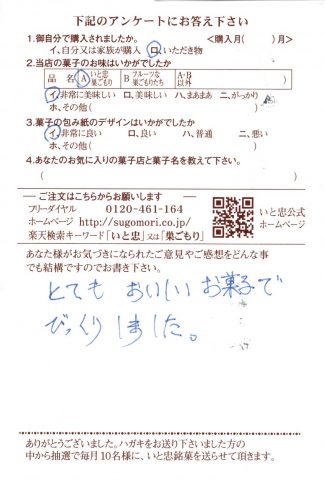 下記のアンケートにお答え下さい
1.御自分で購入されましたか。 <購入月( )月>
イ、自分又は家族が購入 ロ、いただき物
2.当店の菓子のお味はいかがでしたか
品 名 A いと忠巣ごもり B フルーツな巣ごもりたち A・B以外
イ.非常に美味しい ロ、美味しい ハ、まあまあ ニ、がっかり
ホ、その他( )
3.菓子の包み紙のデザインはいかがでしたか
イ.非常に良い ロ、良い ハ、普通 ニ、悪い
ホ、その他( )
4.あなたのお気に入りの菓子店と菓子名を教えて下さい。
( )
ご注文はこちらからお願いします
フリーダイヤル 0120-461-164
ホームページ http://sugomori.co.jp/
楽天検索キーワード「いと忠」又は「巣ごもり」
いと忠公式
ホームページ
あなた様がお気づきになられたご意見やご感想をどんな事
でも結構ですのでお書き下さい。
とても おいしい お菓子で
びっくりしました。
ありがとうございました。ハガキをお送り下さいました方の
中から抽選で毎月10名様に、いと忠銘菓を送らせて頂きます。